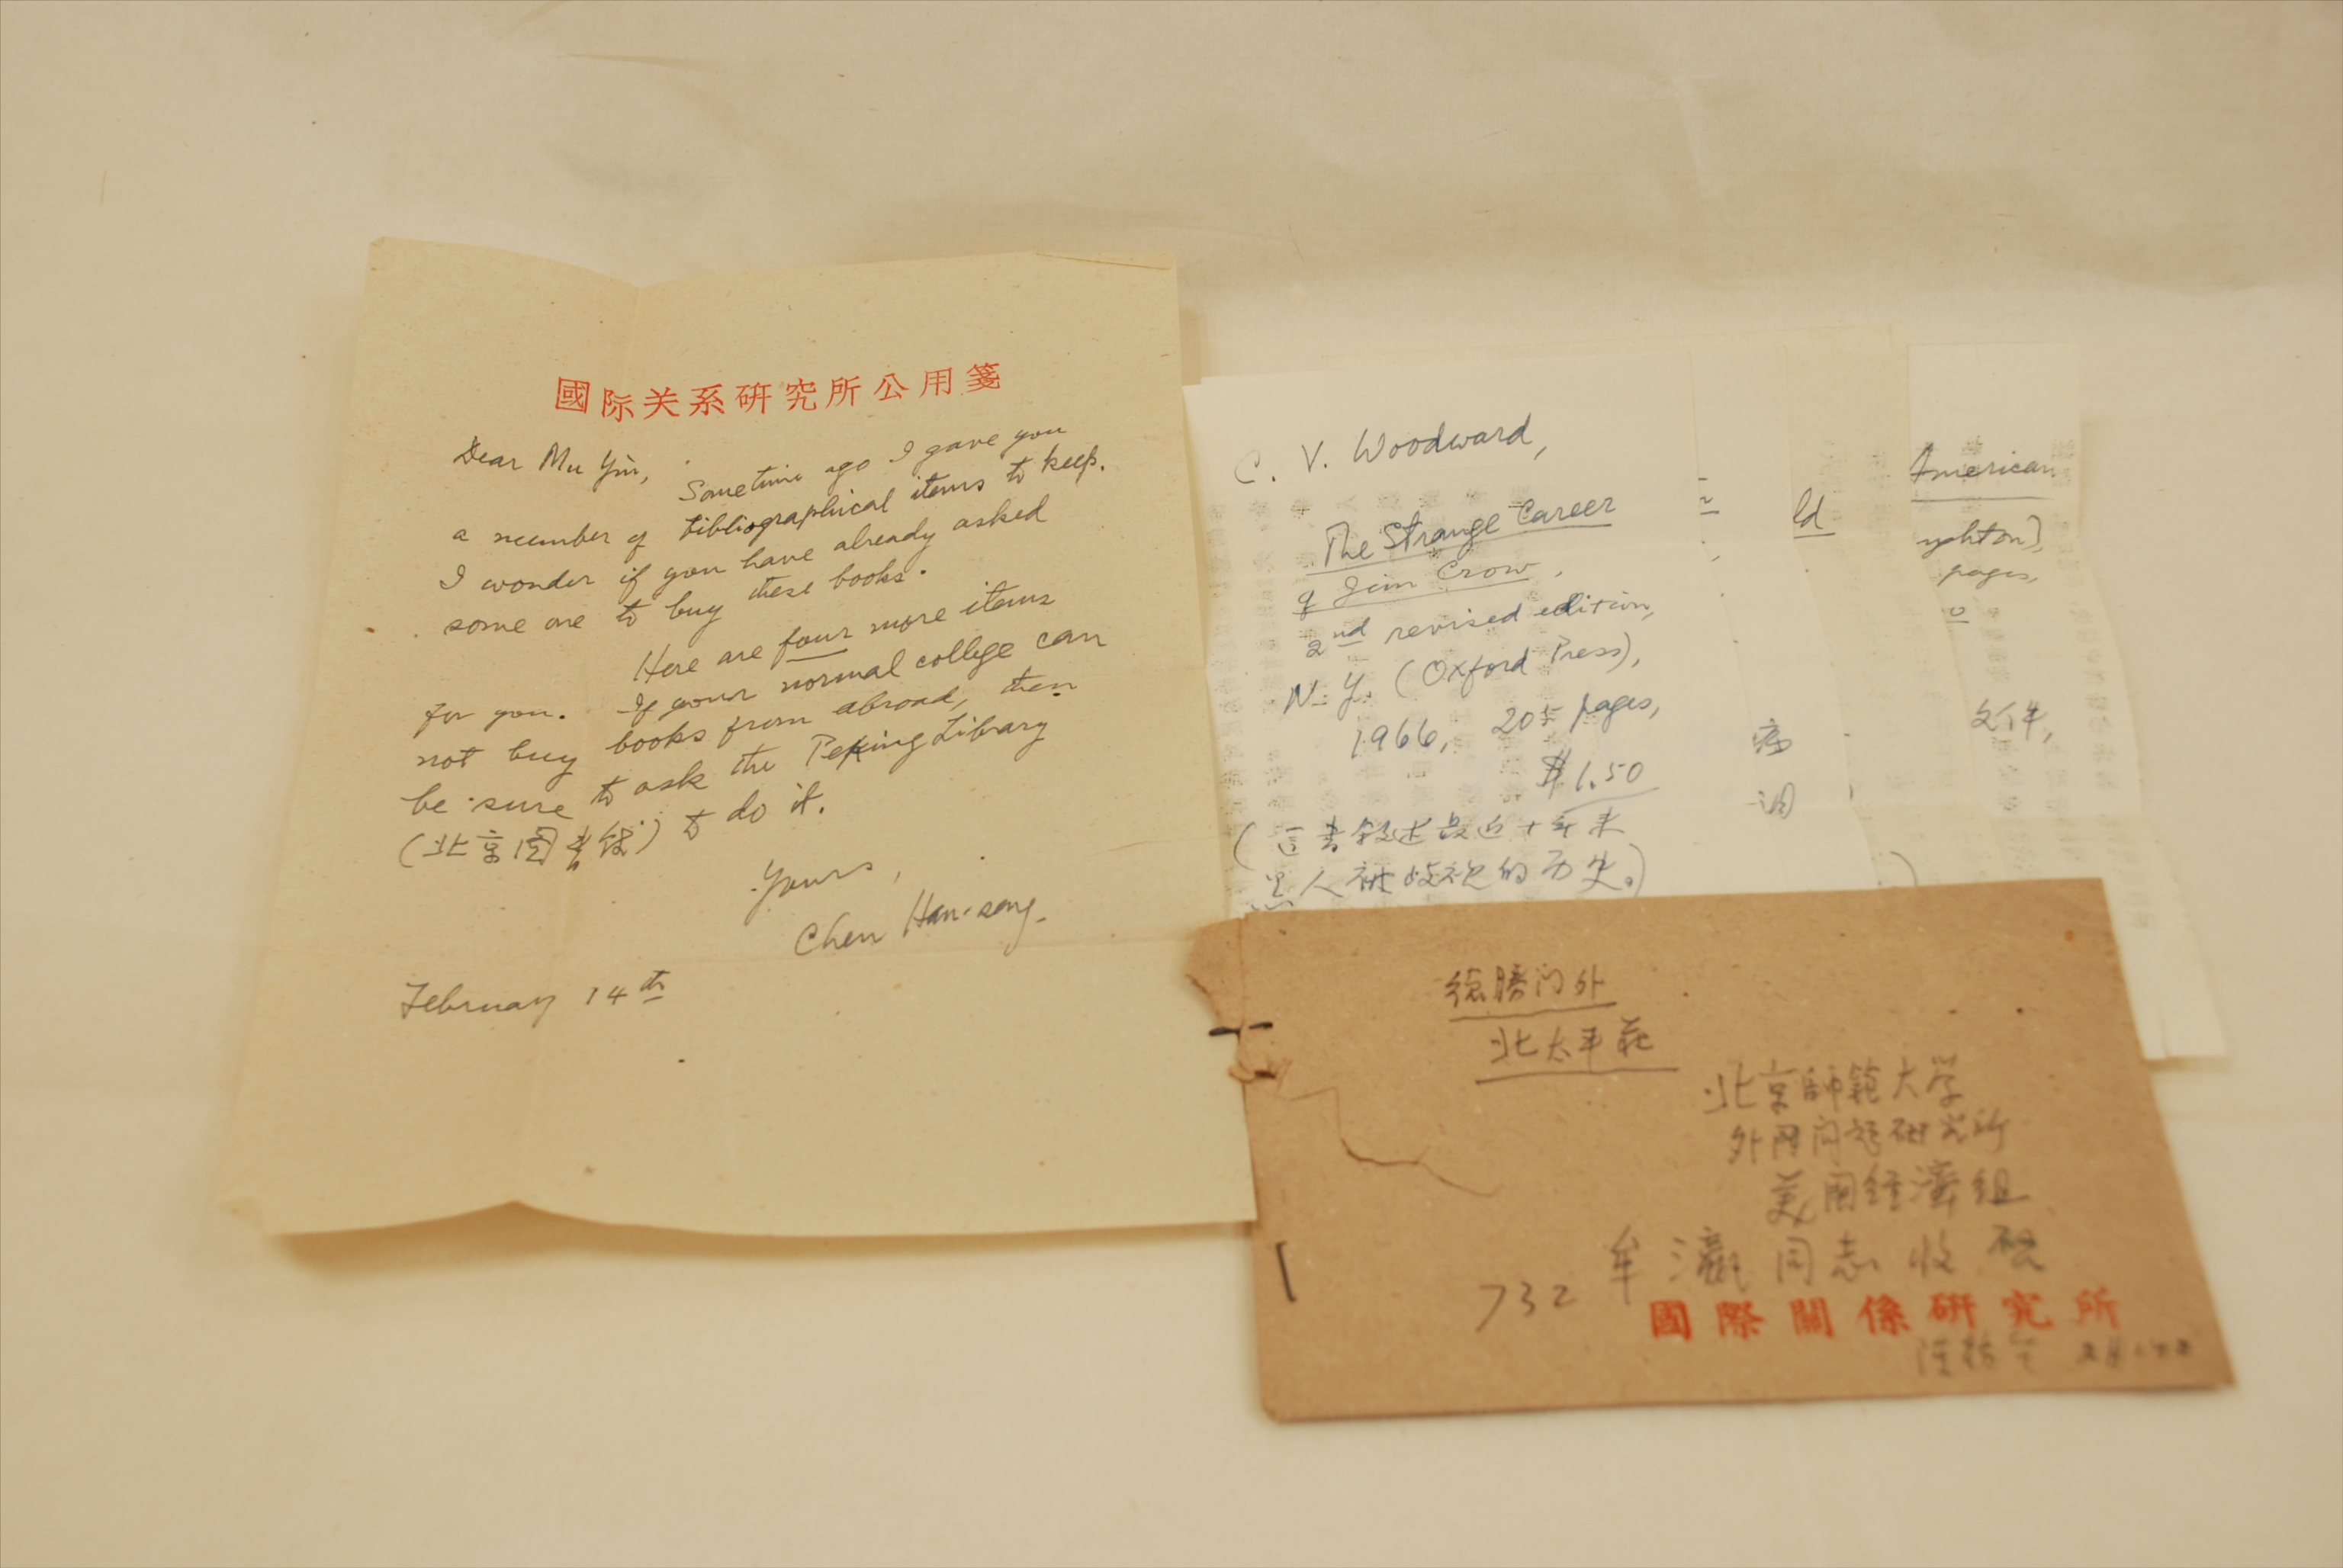 國际关系研究所公用箋
Dear Mu Yin,
Sometime ago I gave you
a number of bibliographical items to keep.
I wonder if you have already asked
some one to buy these books.
Here are four more items
for you. If your normal college can
not buy books from abroad, then
be sure to ask the Peking Library
(北京图书馆) to do it.
Yours,
Chen Han-seng.
February 14th
C. V. Woodward,
The Strange Career
of Jim Crow,
2nd revised edition,
N.Y. (Oxford Press),
1966, 205 pages,
$1.50
(這书叙述最近十年来
黑人被歧视的历史。)
ld
American
ghton),
pages,
文件,
德勝门外
北太平莊
北京師範大学
外国问题研究所
美国经濟组
牟瀛同志收啟
732
國際關係研究所